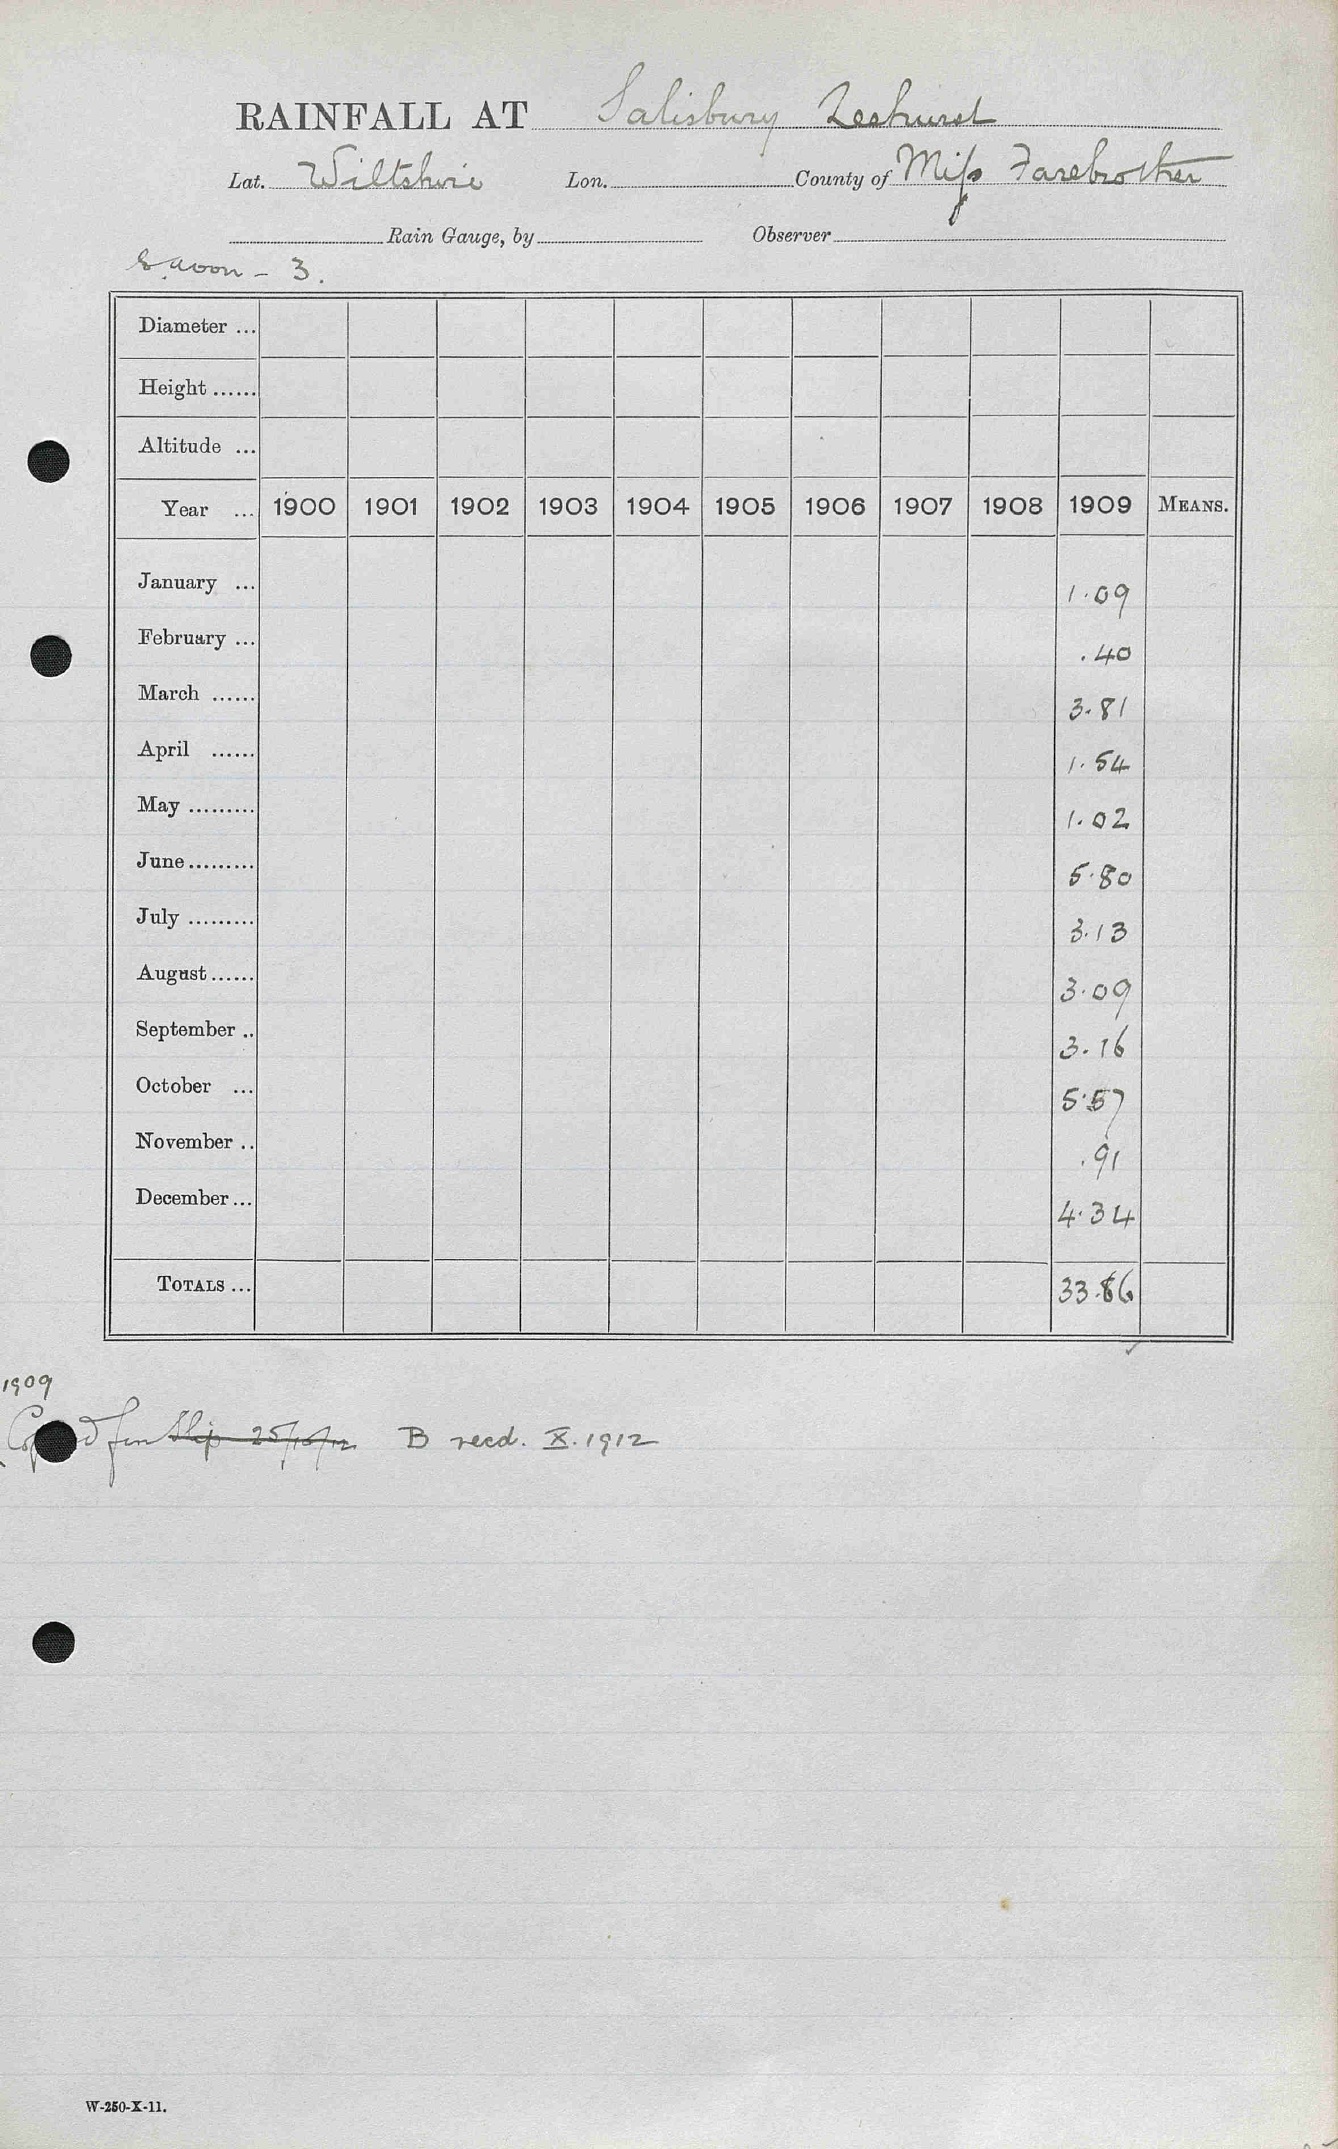 RAINFALL AT Salisbury Leehurst
Lat. Wiltshire Lon. County of Miss Farebrother
Rain Gauge, by Observer
E. Avon - 3.
Diameter ...
Height ......
Altitude ...
Year ... 1900 1901 1902 1903 1904 1905 1906 1907 1908 1909 MEANS.
January ... 1.09
February ... .40
March ...... 3.81
April ...... 1.54
May ......... 1.02
June ......... 5.80
July ......... 3.13
August ...... 3.09
September .. 3.16
October ... 5.57
November .. .91
December ... 4.34
TOTALS ... 33.86
1909
from slip 25/10/12 B recd. X. 1912
W-250-X-11.